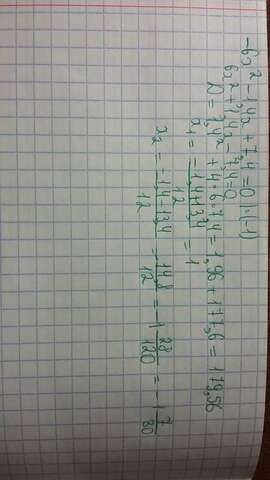 -6x² - 1,4x + 7,4 = 0 | · (-1)
6x² + 1,4x - 7,4 = 0
D = 1,4² + 4 · 6 · 7,4 = 1,96 + 177,6 = 179,56
x₁ = (-1,4 + 13,4)/12 = 1
x₂ = (-1,4 - 13,4)/12 = -14,8/12 = -1 28/120 = -1 7/30